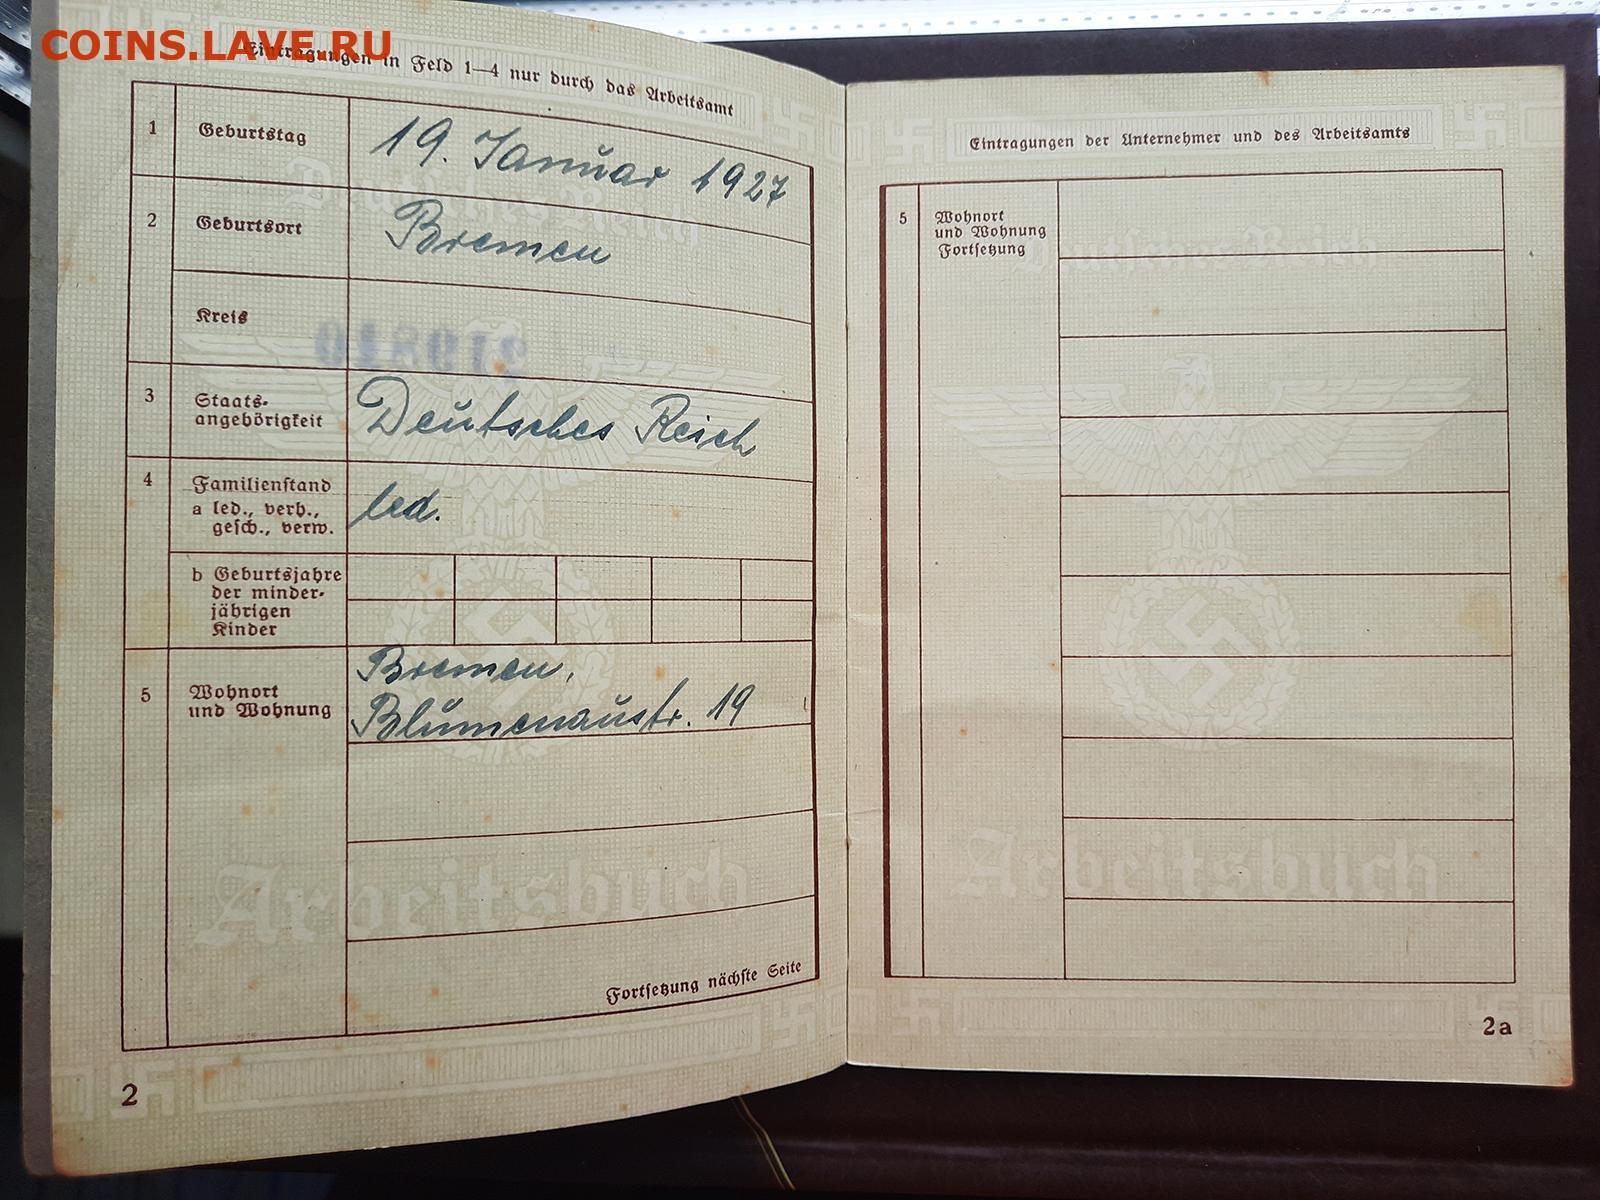 COINS.LAVE.RU
Eintragungen in Feld 1—4 nur durch das Arbeitsamt
1 Geburtstag 19. Januar 1927
2 Geburtsort Bremen
Kreis
3 Staats-
angehörigkeit Deutsches Reich
4 Familienstand
a led., verh., led.
gesch., verw.
b Geburtsjahre
der minder-
jährigen
Kinder
5 Wohnort Bremen,
und Wohnung Blumenaustr. 19
Fortsetzung nächste Seite
Deutsches Reich
Arbeitsbuch
2
Eintragungen der Unternehmer und des Arbeitsamts
5 Wohnort
und Wohnung
Fortsetzung
Deutsches Reich
Arbeitsbuch
2a